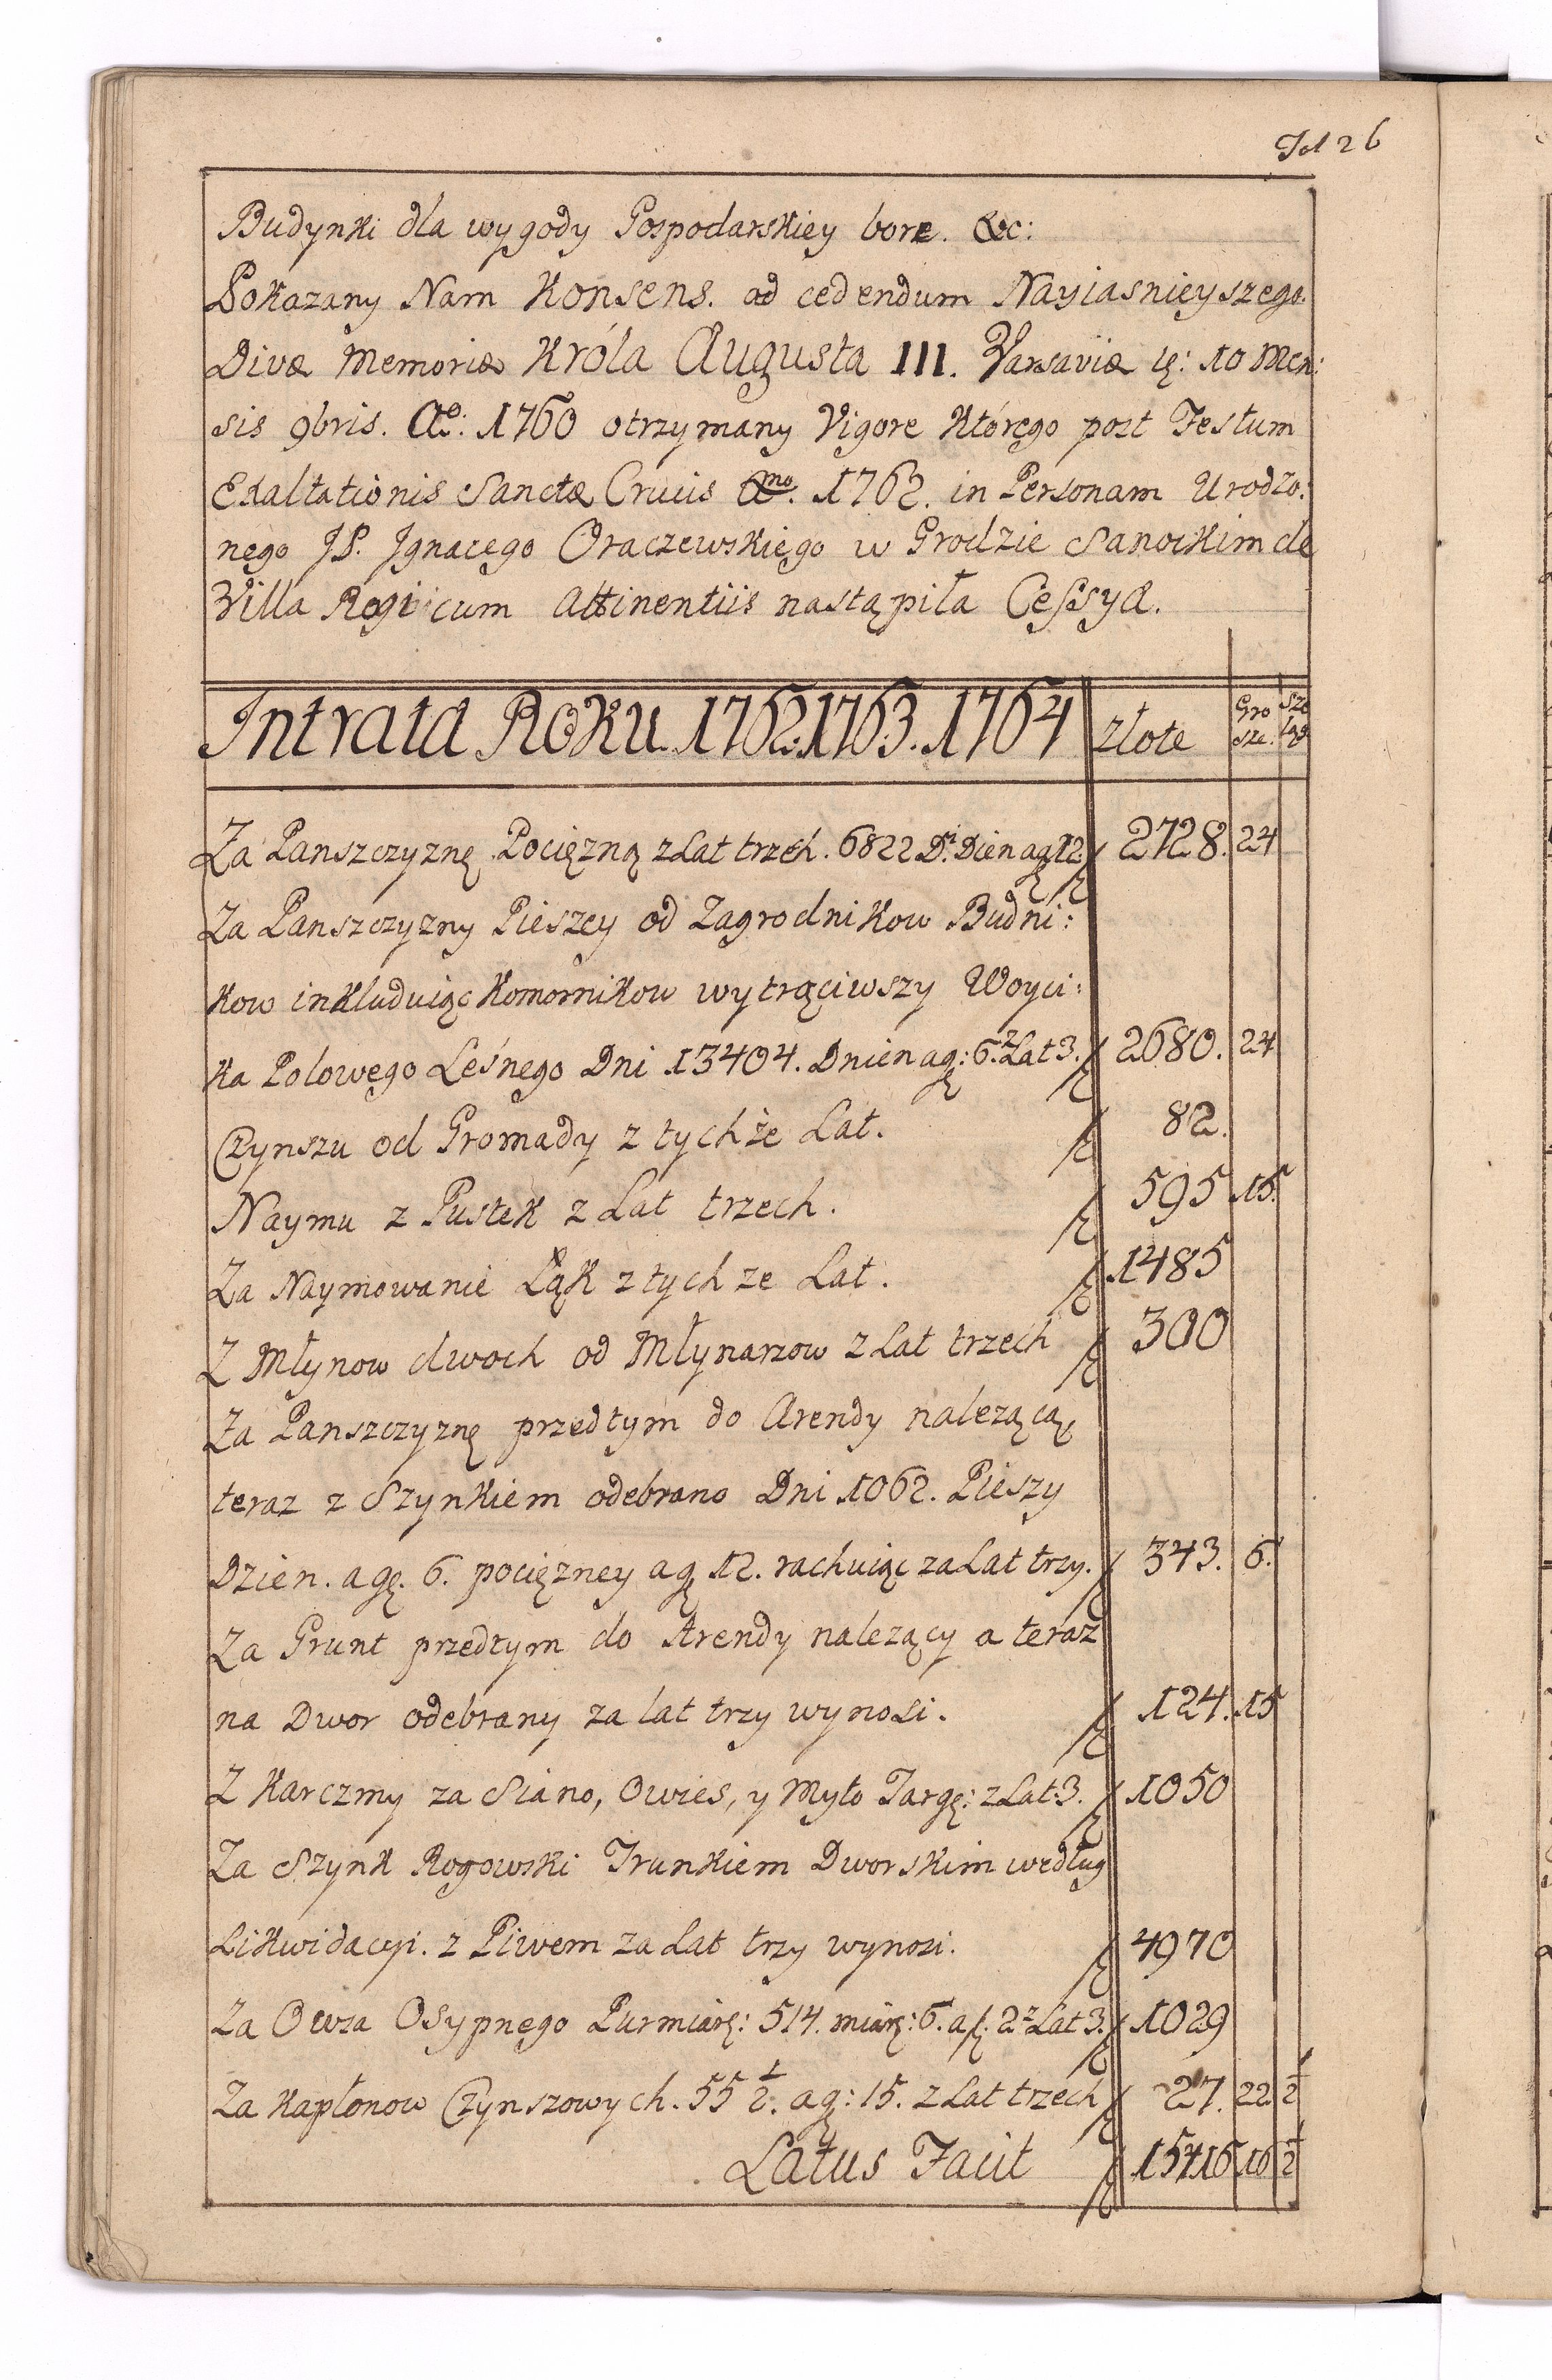 Fol 26
Budynki dla wygody Gospodarskiey bore. &c:
Pokazany Nam Konsens. ad cedendum Nayiasnieyszego.
Divæ Memoriæ Króla Augusta III. Varsaviæ ię: 10 Men:
sis 9bris. Ao: 1760 otrzymany Vigore Którego post Festum
Exaltationis Sanctæ Crucis Amo. 1762. in Personam Urodzo:
nego JP. Ignacego Oraczewskiego w Grodzie Sanockim de
Villa Rogi cum Attinentiis nastąpiła Cessya.
Intrata Roku. 1762. 1763. 1764 złote Gro sze. Sze lągi
Za Panszczyznę Pociężną z Lat trzech. 6822 D: Dien a gr 12. 2728. 24
Za Panszczyzny Pieszey od Zagrodnikow Budni:
kow inkluduiąc Komornikow wytrąciwszy Woyci:
ka Polowego Leśnego Dni 13404. Dnien a g: 6. z Lat 3. 2680. 24
Czynszu od Gromady z tychże Lat. 82.
Naymu z Pustek z Lat trzech. 595 15.
Za Naymowanie Łąk z tych ze Lat. 1485
Z Młynow dwoch od Młynarzow z Lat trzech 300
Za Panszczyznę przedtym do Arendy nalezącą,
teraz z Szynkiem odebrano Dni 1062. Pieszy
Dzien. a g. 6. pociężney a g 12. rachuiąc za Lat trzy. 343. 6.
Za Grunt przedtym do Arendy nalezący a teraz
na Dwor odebrany za lat trzy wynosi. 124. 15
Z Karczmy za Siano, Owies, y Myto Targ: z Lat: 3. 1050
Za Szynk Rogowski Trunkiem Dworskim według
Likwidacyi. z Piwem za Lat trzy wynosi. 4970
Za Owsa Osypnego Purmiar: 514. miar: 6. a f. 2. z Lat 3. 1029
Za Kapłonow Czynszowych. 55 1/2. a g: 15. z Lat trzech 27. 22. 1/2
Latus Facit 15416 16 1/2